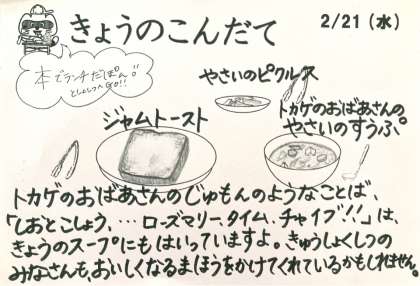 きょうのこんだて
2/21(水)
本でランチだぱん!!
としょしつへGO!!
やさいのピクルス
ジャムトースト
トカゲのおばあさんの
やさいのすうぷ。
トカゲのおばあさんのじゅもんのようなことば、
「しおとこしょう、…ローズマリー、タイム、チャイブ!!」は、
きょうのスープにもはいっていますよ。きゅうしょくしつの
みなさんも、おいしくなるまほうをかけてくれているかもしれません。